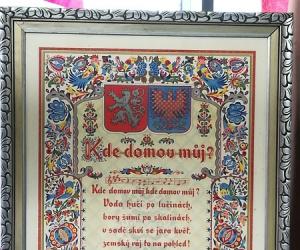 Kde domov můj?
Kde domov můj? kde domov můj?
Voda hučí po lučinách,
bory šumí po skalinách,
v sadě skví se jara květ,
zemský ráj to na pohled!